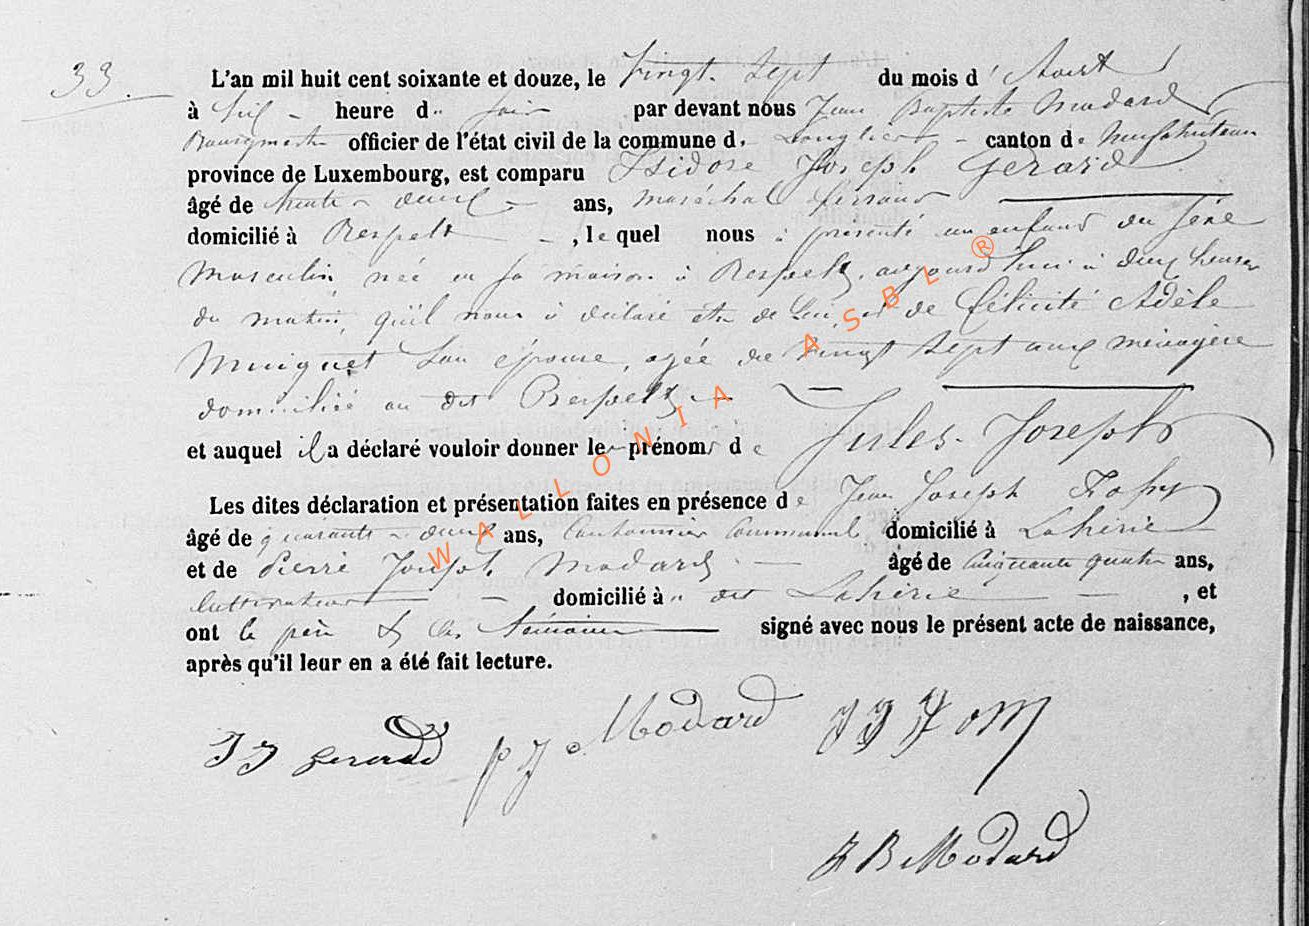 33.
L'an mil huit cent soixante et douze, le Vingt Sept du mois d'Aout
à Six heure du soir par devant nous Jean Baptiste Modard
Bourgmestre officier de l'état civil de la commune de Longlier canton de Neufchateau
province de Luxembourg, est comparu Isidore Joseph Gerard
âgé de trente deux ans, maréchal ferrant
domicilié à Respelt, lequel nous à présenté un enfant du sexe
masculin née en sa maison à Respelt, aujourd'hui à deux heures
du matin, qu'il nous à déclaré être de Lui, et de Félicité Adèle
Muiguet Son épouse, agée de Vingt Sept ans ménagère
domiciliée au dit Respelt
et auquel il a déclaré vouloir donner les prénoms de Jules Joseph
Les dites déclaration et présentation faites en présence de Jean Joseph
âgé de quarante deux ans, Cantonnier Communal domicilié à Lahérie
et de Pierre Joseph Modard âgé de Cinquante quatre ans,
Cultivateur domicilié à dit Lahérie, et
ont le père & les témoins signé avec nous le présent acte de naissance,
après qu'il leur en a été fait lecture.
J J Gerard p J Modard J J
J B Modard
WALLONIA ASBL ®